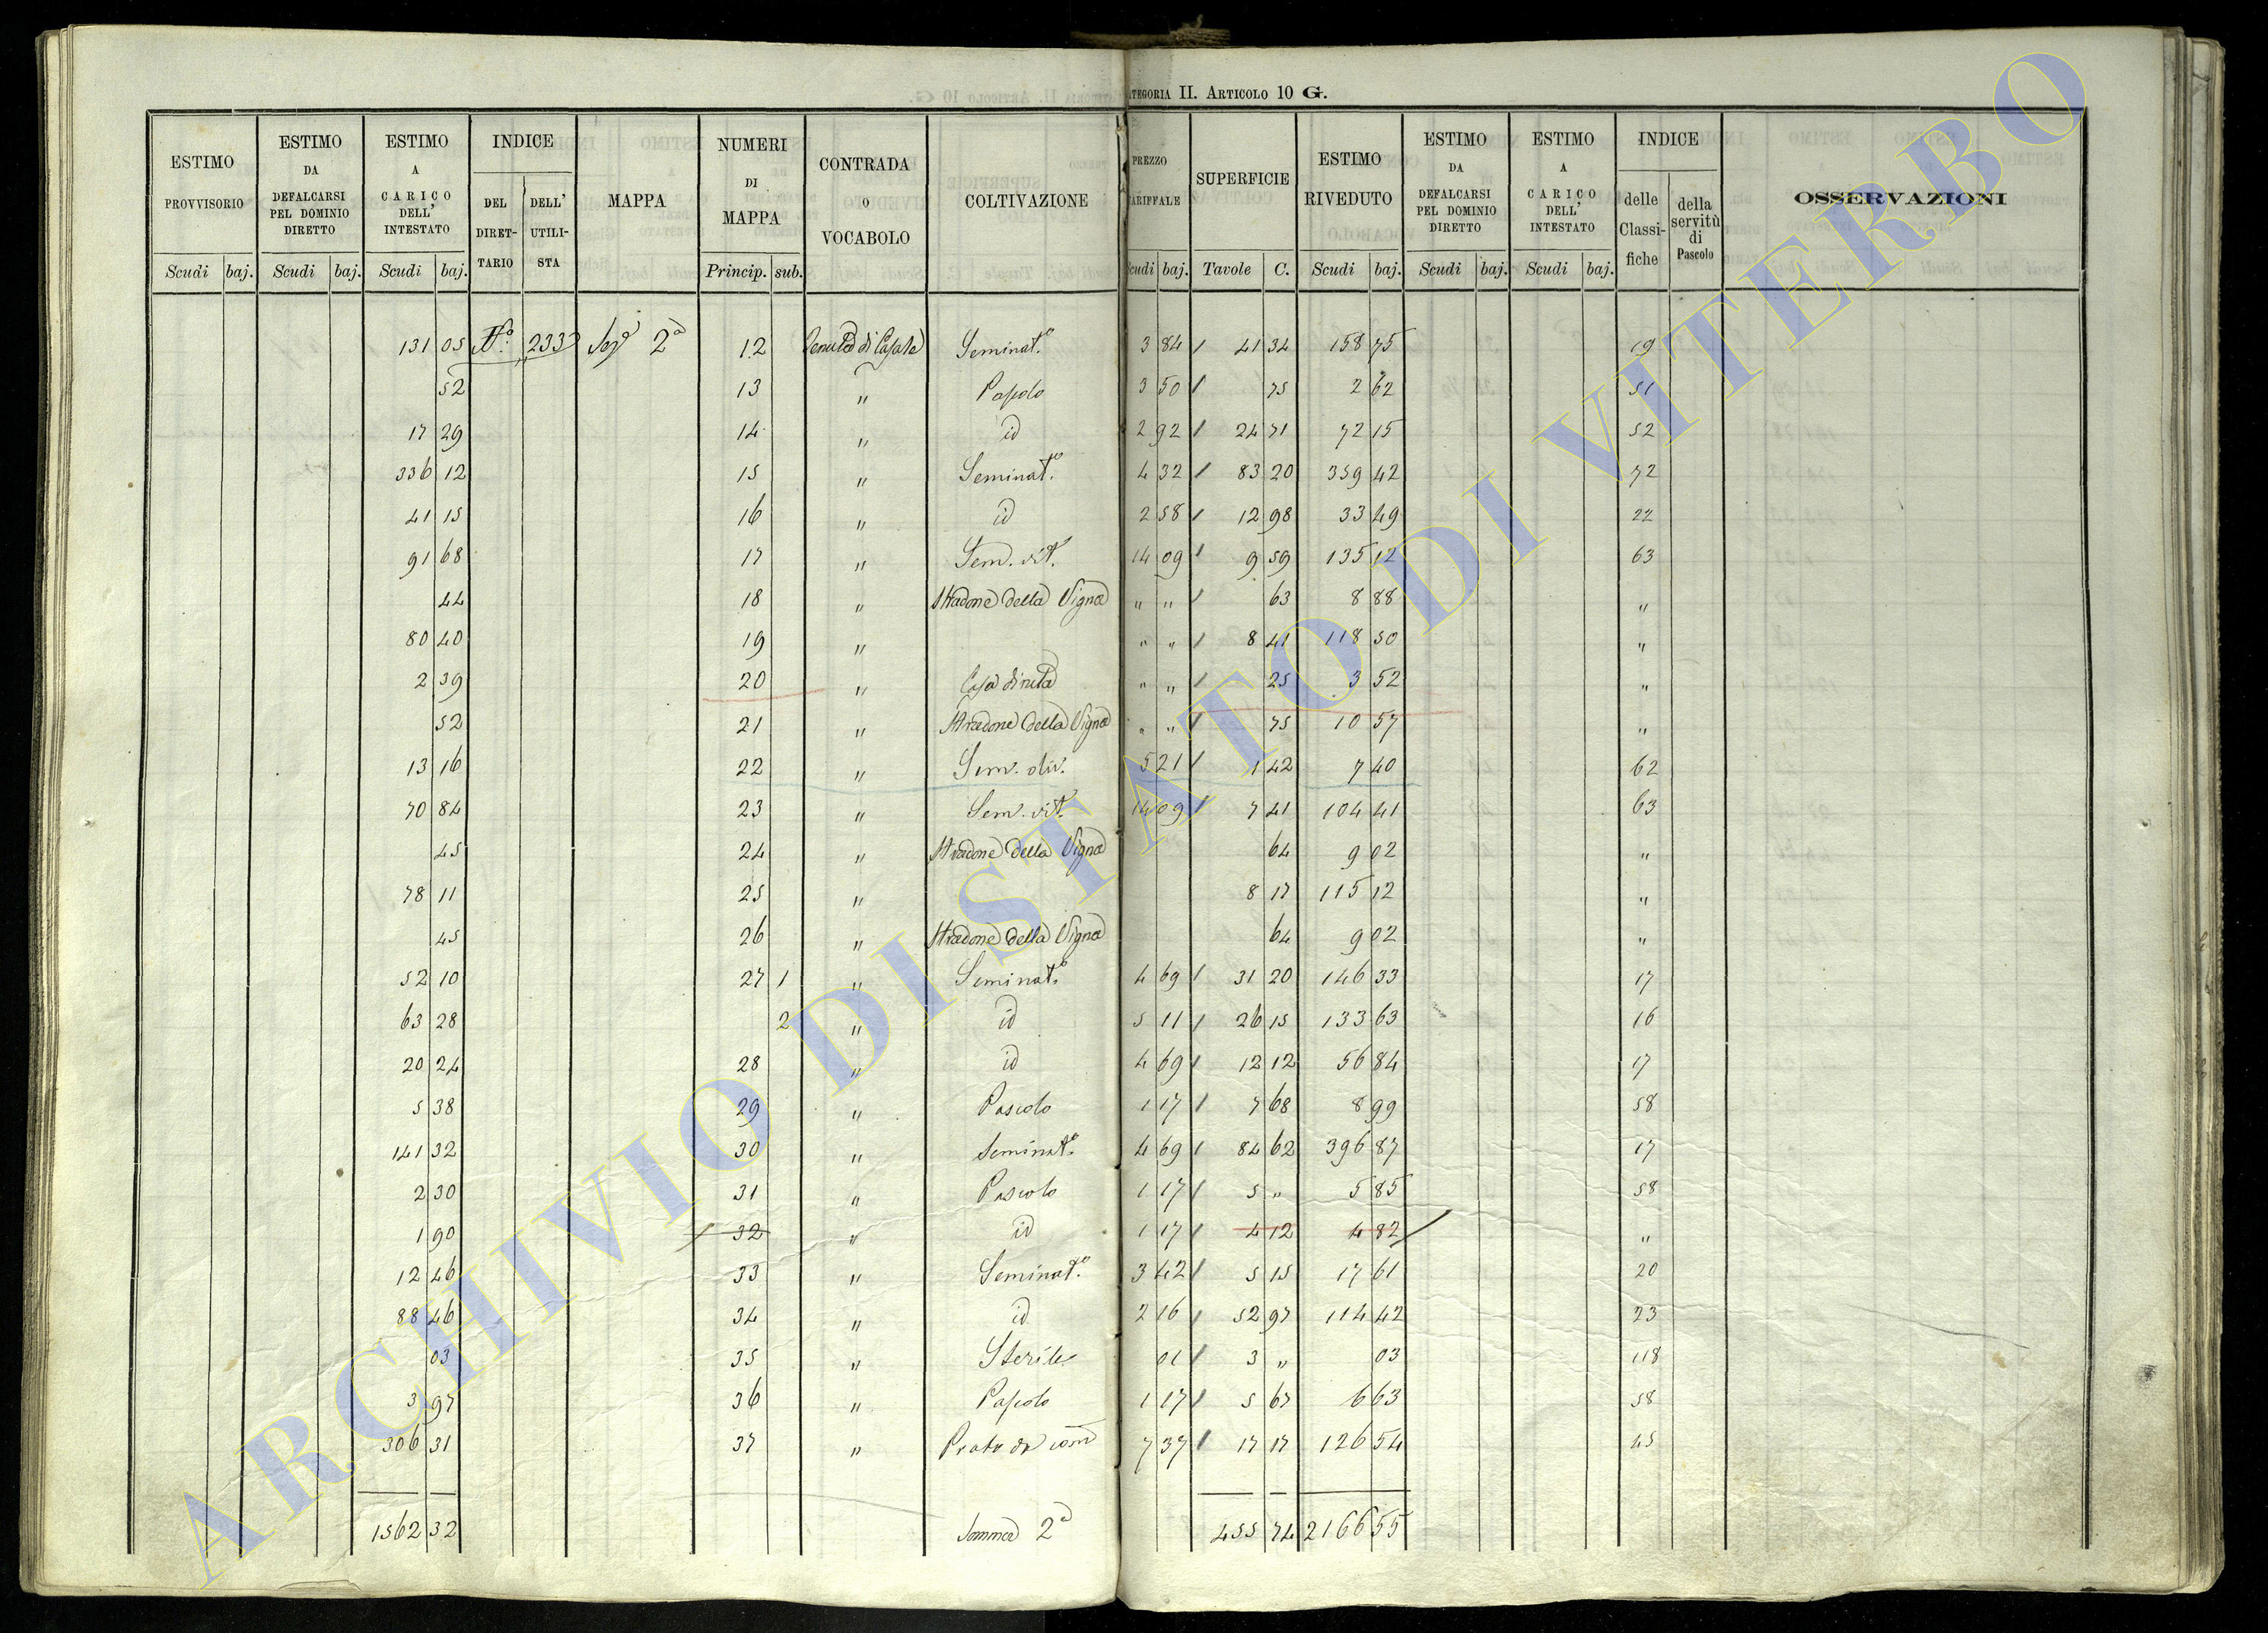 CATEGORIA II. ARTICOLO 10 G.
ESTIMO PROVVISORIO | ESTIMO DA DEFALCARSI PEL DOMINIO DIRETTO | ESTIMO A CARICO DELL' INTESTATO | INDICE DEL DIRETTARIO | DELL' UTILISTA | MAPPA | NUMERI DI MAPPA | CONTRADA O VOCABOLO | COLTIVAZIONE | PREZZO TARIFFALE | SUPERFICIE | ESTIMO RIVEDUTO | ESTIMO DA DEFALCARSI PEL DOMINIO DIRETTO | ESTIMO A CARICO DELL' INTESTATO | INDICE delle Classifiche | della servitù di Pascolo | OSSERVAZIONI
Scudi | baj. | Scudi | baj. | Scudi | baj. | Princip. | sub. | Scudi | baj. | Tavole | C. | Scudi | baj. | Scudi | baj. | Scudi | baj.
131 05 | N.° 233 | Seze 2ª | 12 | Tenuta di Casale | Seminat.° | 3 84 | 41 34 | 158 75 | 19
52 | 13 | " | Pascolo | 3 50 | 75 | 2 62 | 51
17 29 | 14 | " | id | 2 92 | 24 71 | 72 15 | 52
336 12 | 15 | " | Seminat.° | 4 32 | 83 20 | 359 42 | 72
41 15 | 16 | " | id | 2 58 | 12 98 | 33 49 | 22
91 68 | 17 | " | Sem. vit. | 14 09 | 9 59 | 135 12 | 63
44 | 18 | " | Stradone della Vigna | " " | 63 | 8 88 | "
80 40 | 19 | " | " " | 8 41 | 118 50 | "
2 39 | 20 | " | Casa diruta | " " | 25 | 3 52 | "
52 | 21 | " | Stradone della Vigna | " " | 75 | 10 57 | "
13 16 | 22 | " | Sem. oliv. | 5 21 | 1 42 | 7 40 | 62
70 84 | 23 | " | Sem. vit. | 14 09 | 7 41 | 104 41 | 63
45 | 24 | " | Stradone della Vigna | 64 | 9 02 | "
78 11 | 25 | " | 8 17 | 115 12 | "
45 | 26 | " | Stradone della Vigna | 64 | 9 02 | "
52 10 | 27 | 1 | " | Seminat.° | 4 69 | 31 20 | 146 33 | 17
63 28 | 2 | " | id | 5 11 | 26 15 | 133 63 | 16
20 24 | 28 | " | id | 4 69 | 12 12 | 56 84 | 17
5 38 | 29 | " | Pascolo | 1 17 | 7 68 | 8 99 | 58
141 32 | 30 | " | Seminat.° | 4 69 | 84 62 | 396 87 | 17
2 30 | 31 | " | Pascolo | 1 17 | 5 " | 5 85 | 58
1 90 | 32 | " | id | 1 17 | 4 12 | 4 82 | "
12 46 | 33 | " | Seminat.° | 3 42 | 5 15 | 17 61 | 20
88 46 | 34 | " | id | 2 16 | 52 97 | 114 42 | 23
03 | 35 | " | Sterile | 01 | 3 " | 03 | 118
3 97 | 36 | " | Pascolo | 1 17 | 5 67 | 6 63 | 58
306 31 | 37 | " | Prato | 7 37 | 17 17 | 126 54 | 45
1562 32 | Somma 2ª | 455 74 | 2166 55
ARCHIVIO DI STATO DI VITERBO